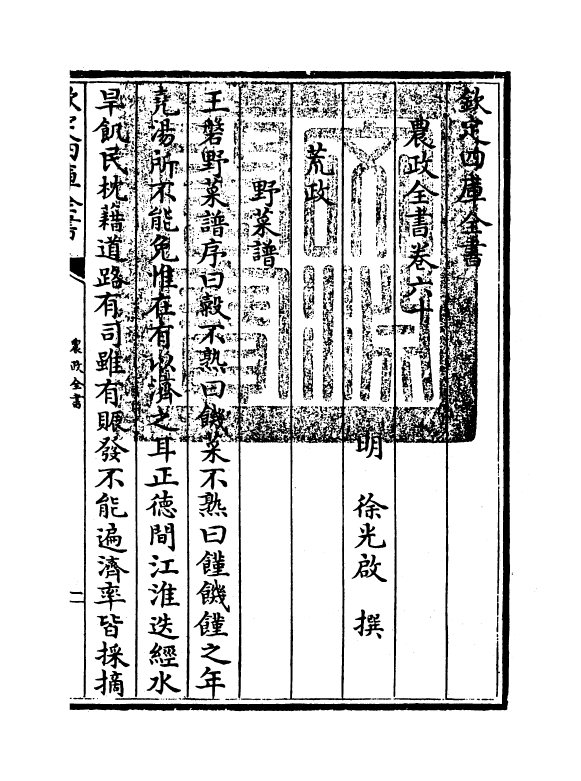 欽定四庫全書
農政全書卷六十
明　徐光啟　撰
荒政
野菜譜
王磐野菜譜序曰穀不熟曰饑菜不熟曰饉饑饉之年
堯湯所不能免惟在有以濟之耳正德間江淮迭經水
旱飢民枕藉道路有司雖有賑發不能遍濟率皆採摘
欽定四庫全書
農政全書
一